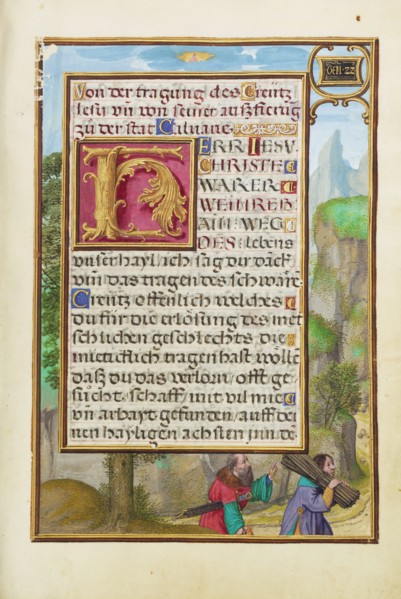 GEN·22
Von der tragung des Creütz
Jesu vn̄ von seiner außfierūg
zů der stat Caluarie.
HERR IESV
CHRISTE
WARER
WEINREB
AIN WEG
DES lebens
vnser hayl ich sag dir dāck
vm̄ das tragen des schwarē
Creütz offenlich welches
du für die erlösung des mēt
schlichen geschlechts die
mieticklich tragen hast wölle
daß du das verlorn offt ge-
sücht schaff mit vil mie
vn̄ arbayt gefunden auff dei
nen hayligen achslen inn de-